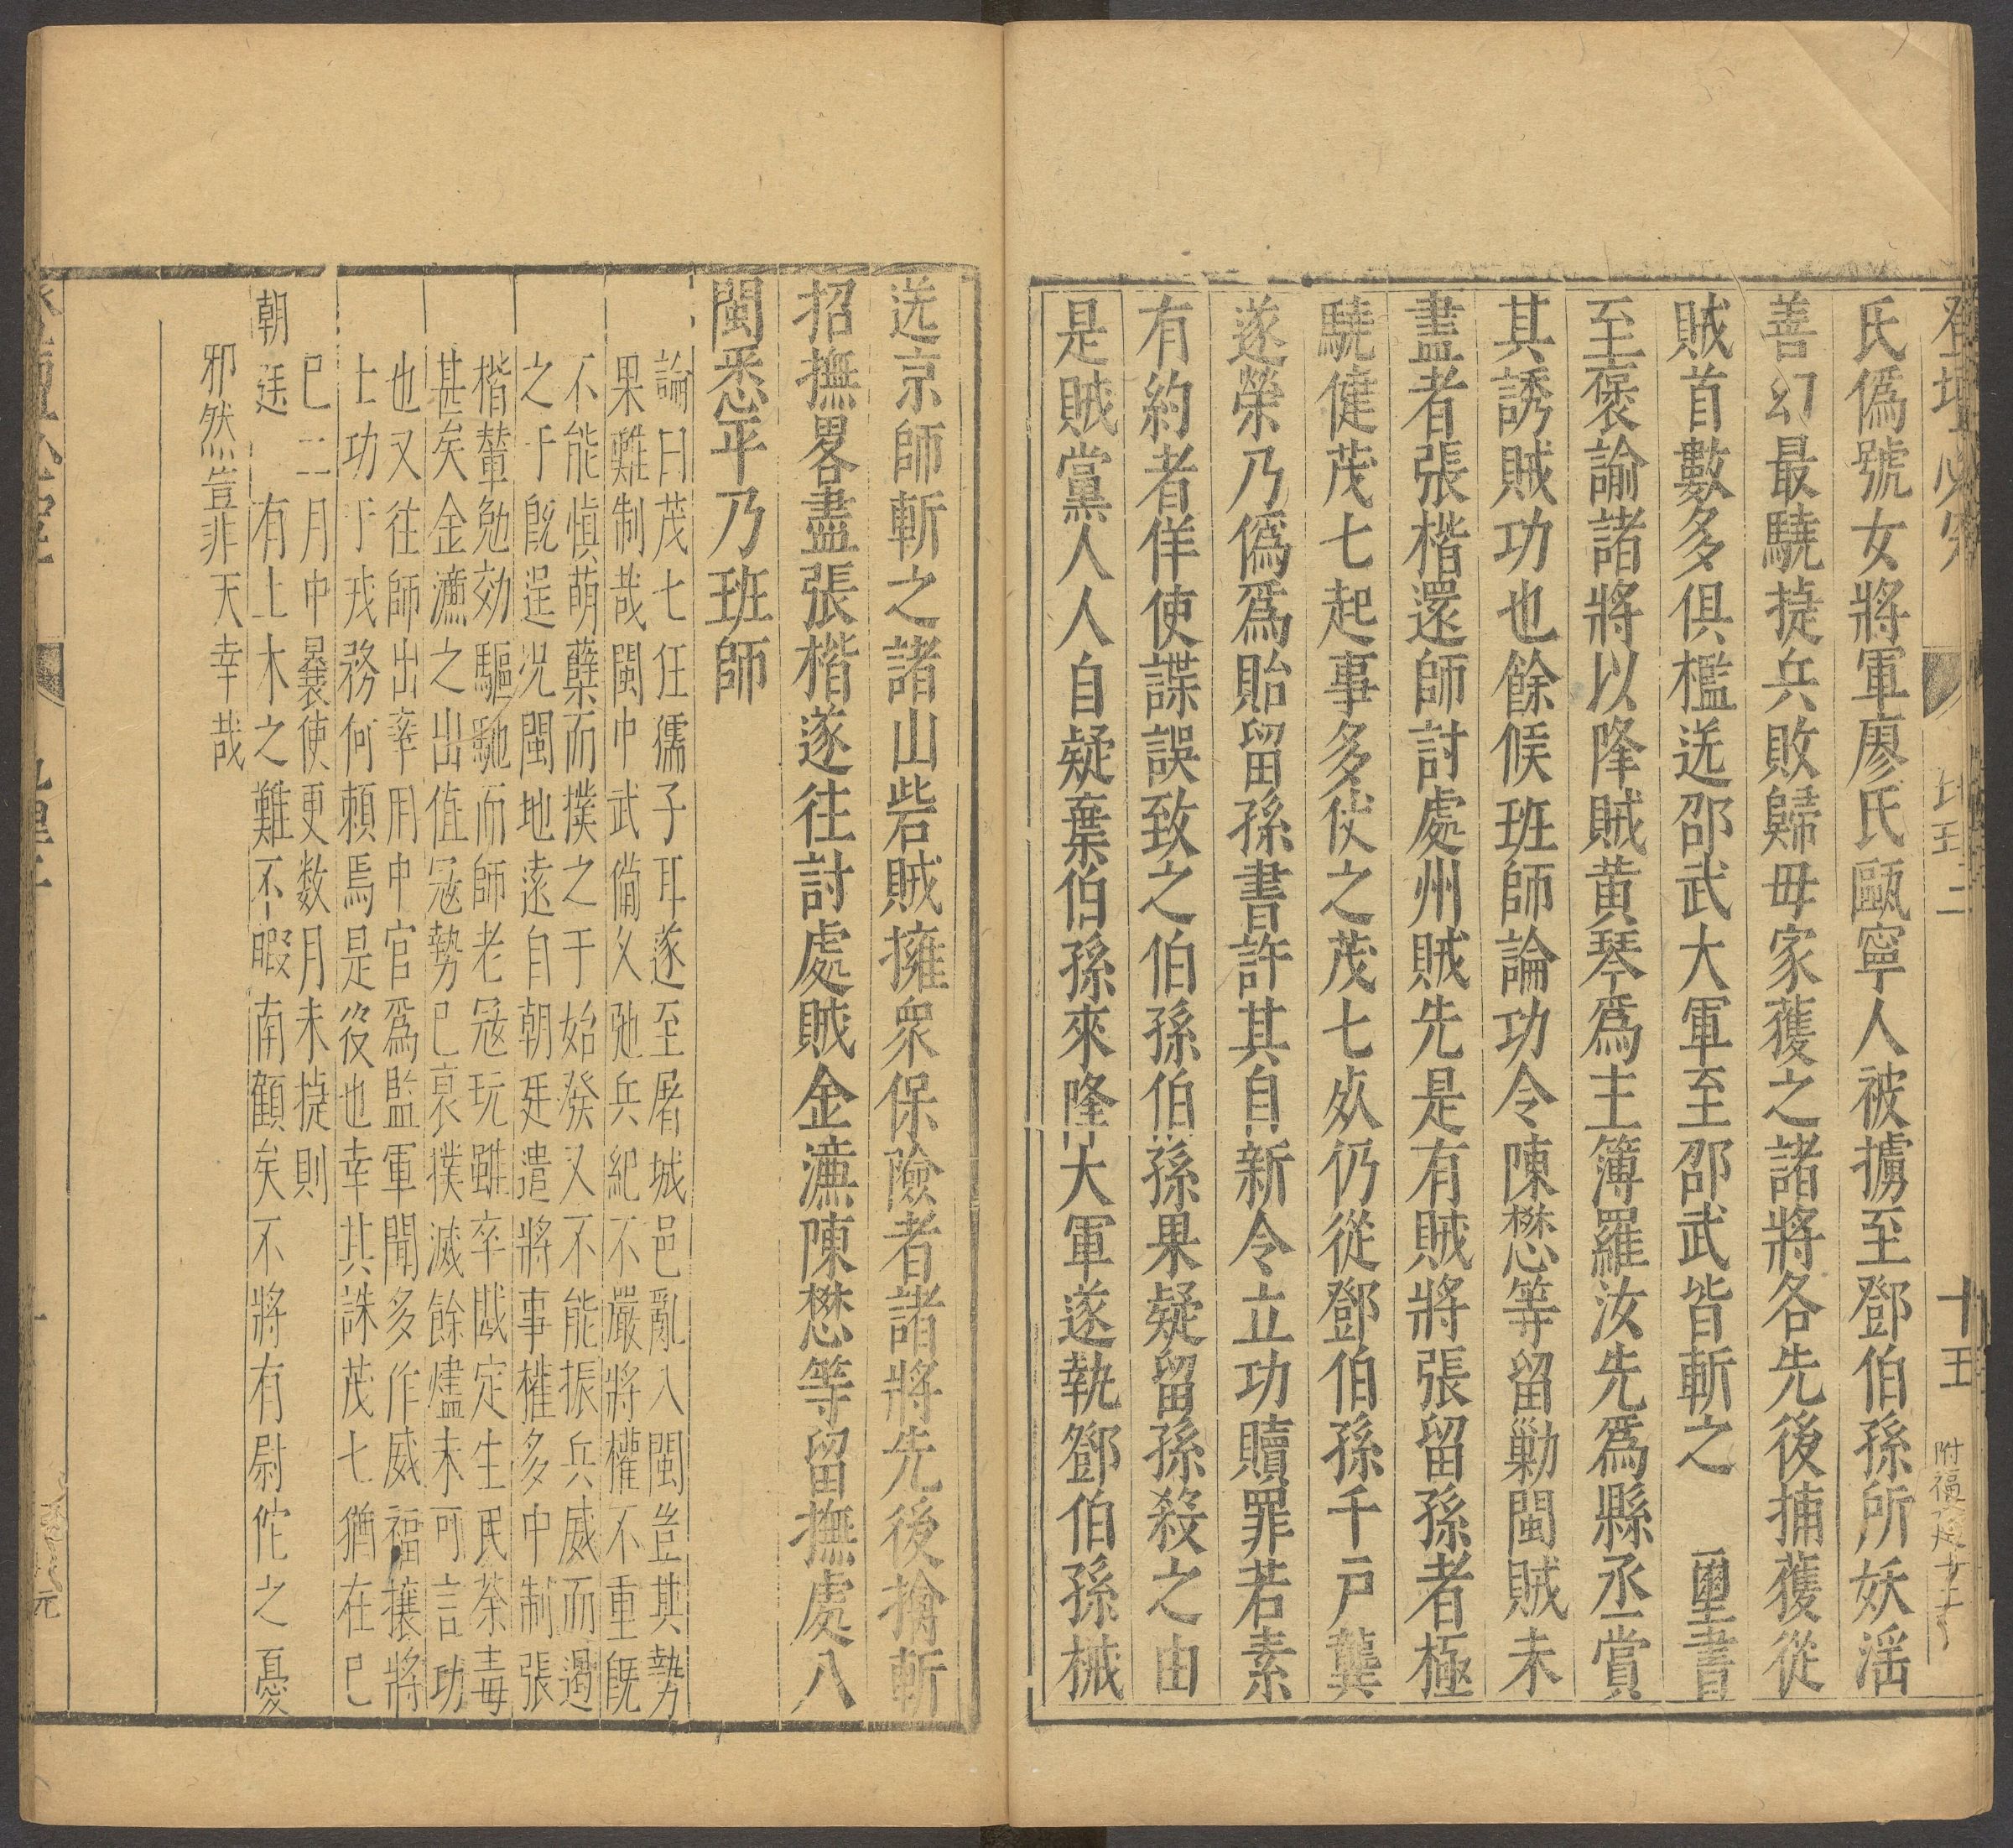 登壇必究
十五
氏僞號女將軍廖氏甌寧人被擄至鄧伯孫所妖滛
善幻最驍捷兵敗歸毋家獲之諸將各先後捕獲從
賊首數多俱檻送邵武大軍至邵武皆斬之 璽書
至褒諭諸將以降賊黃琴爲主簿羅汝先爲縣丞賞
其誘賊功也餘候班師論功令陳懋等留勦閩賊未
盡者張楷還師討處州賊先是有賊將張留孫者極
驍健茂七起事多仗之茂七死仍從鄧伯孫千戶龔
遂榮乃僞爲貽留孫書許其自新令立功贖罪若素
有約者佯使諜誤致之伯孫伯孫果疑留孫殺之由
是賊黨人人自疑棄伯孫來降大軍遂執鄧伯孫械
送京師斬之諸山砦賊擁衆保險者諸將先後擒斬
招撫畧盡張楷遂往討處賊金濂陳懋等留撫處八
閩悉平乃班師
論曰茂七狂孺子耳遂至屠城邑亂八閩豈其勢
果難制哉閩中武備久弛兵紀不嚴將權不重旣
不能愼萌蘖而撲之于始發又不能振兵威而遏
之于旣逞况閩地遠自朝廷遣將事權多中制張
楷輩勉効驅馳而師老冦玩雖卒戡定生民荼毒
甚矣金濂之出值冦勢已衰撲滅餘燼未可言功
也又往師出率用中官爲監軍聞多作威福攘將
士功于戎務何賴焉是役也幸其誅茂七猶在已
巳二月中曩使更数月未捷則
朝廷 有土木之難不暇南顧矣不將有尉佗之憂
邪然豈非天幸哉